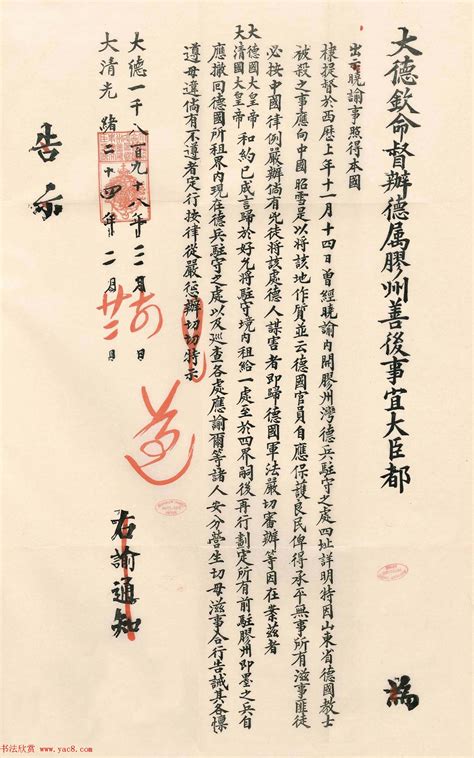 大德欽命督辦德属膠州善後事宜大臣都
端
出示曉諭事照得本國
棣提督於西歷上年十一月十四日曾經曉諭内開膠州灣德兵駐守之處四址詳明特因山東省德國教士
被殺之事應向中國昭雪足以將該地作質並云德國官員自應保護良民俾得承平無事所有滋事匪徒
必按中國律例嚴辦倘有兇徒將該處德人謀害者即歸德國軍法嚴切審辦等因在案茲者
大德國大皇帝
大清國大皇帝
和約已成言歸於好允將駐守境内租給一處至於四界嗣後再行劃定所有前駐膠州即墨之兵自
應撤回德國所租界内現在德兵駐守之處以及巡查各處應諭爾等諸人安分營生切毋滋事合行告誡其各懍
遵毋違倘有不遵者定行按律從嚴懲辦切切特示
右諭通知
大德一千八百九十八年三月
大清光緒二十四年二月廿二日
遵
告示
书法欣赏 www.yac8.com